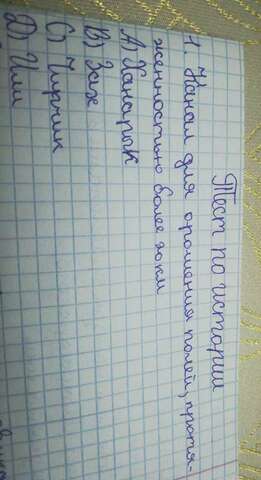 Тест по истории
1. Канал для орошения полей, протя-
женностью более 20 км
А) Ханарык
В) Зах
С) Чирчик
D) Или